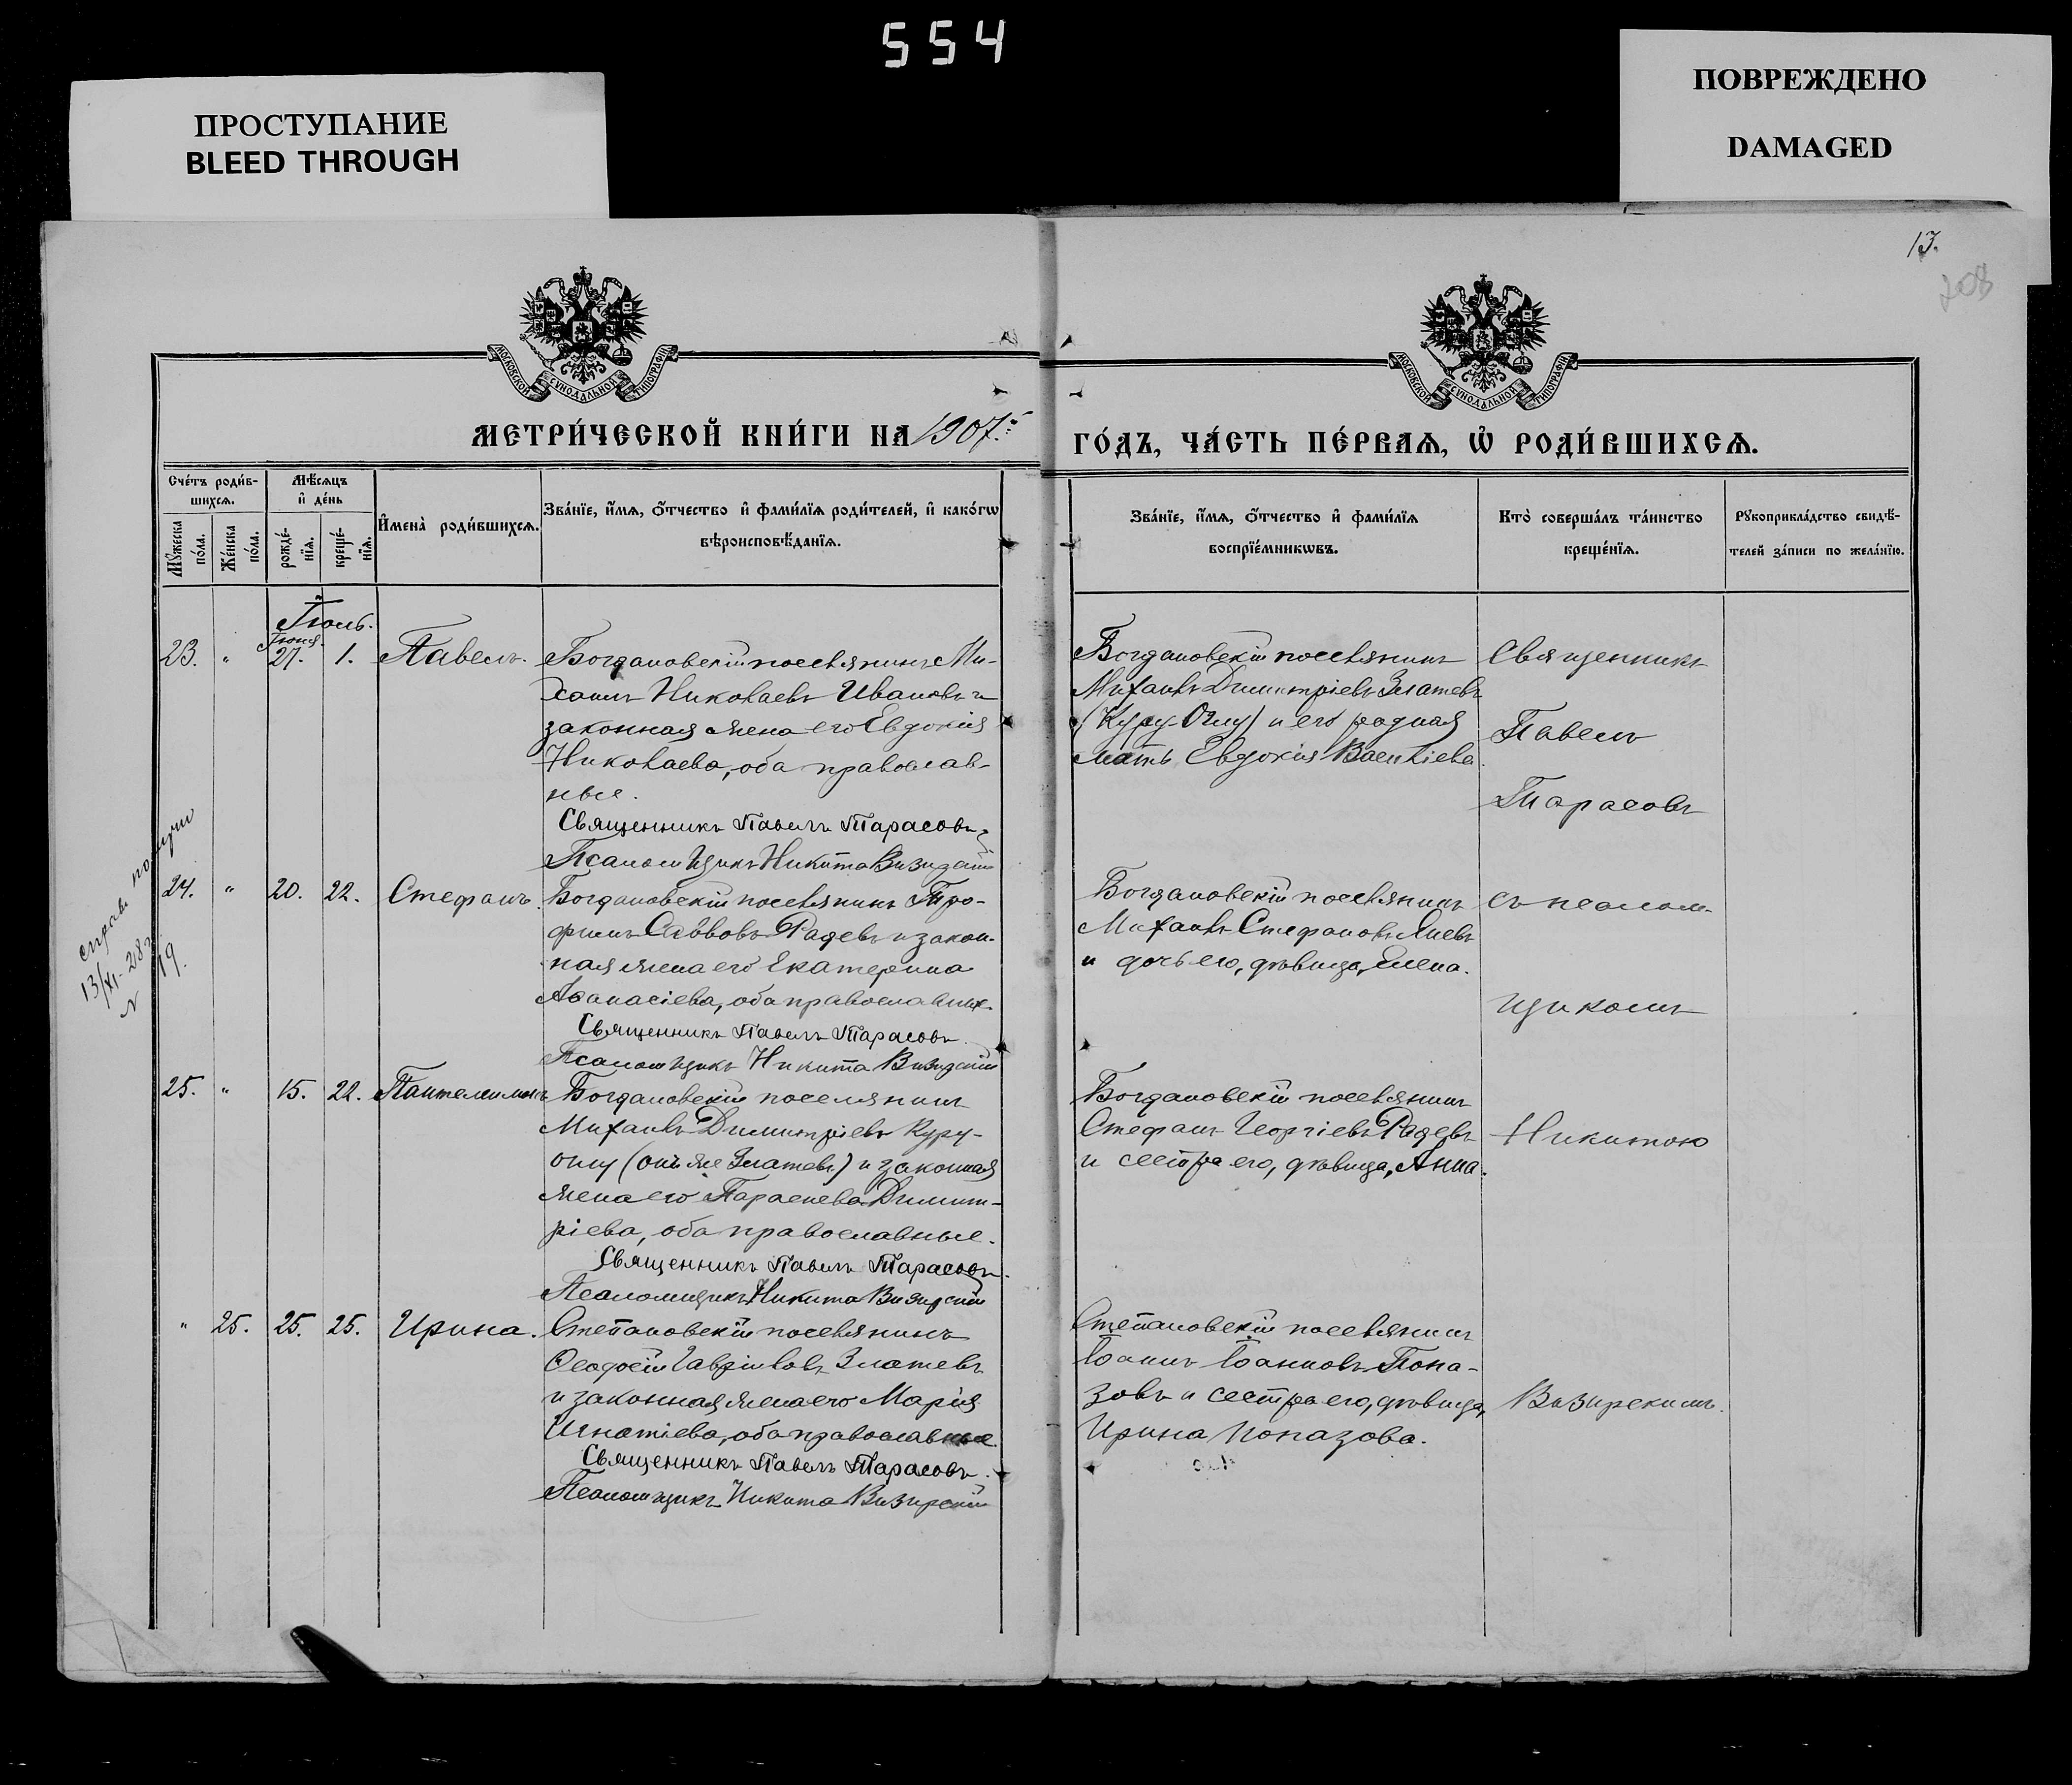 554
ПРОСТУПАНИЕ
BLEED THROUGH
ПОВРЕЖДЕНО
DAMAGED
13.
208
МОСКОВСКОЙ СУНОДАЛЬНОЙ ТИПОГРАФІИ
МОСКОВСКОЙ СУНОДАЛЬНОЙ ТИПОГРАФІИ
МЕТРИ́ЧЕСКОЙ КНИ́ГИ НА 1907.й
ГО́ДЪ, ЧА́СТЬ ПЕ́РВАѦ, Ѡ҆ РОДИ́ВШИХСѦ.
Сче́тъ роди́в-
шихсѧ.
Мꙋ́жеска по́ла.
Же́нска по́ла.
Мѣ́сѧцъ
и҆ де́нь
рожде́-
нїѧ.
креще́-
нїѧ.
И҆мена̀ роди́вшихсѧ.
Зва́нїе, и҆́мѧ, ѻ҆́тчество и҆ фами́лїѧ роди́телей, и҆ како́гѡ
вѣроисповѣ́данїѧ.
Зва́нїе, и҆́мѧ, ѻ҆́тчество и҆ фами́лїѧ
воспрїе́мникѡвъ.
Кто̀ соверша́лъ та́инство
креще́нїѧ.
Рꙋкоприкла́дство свидѣ́-
телей за́писи по жела́нїю.
Іюль.
Іюня
23. " 27. 1. Павелъ.
Богдановскій поселянинъ Ми-
хаилъ Николаевъ Ивановъ и
законная жена его Евдокія
Николаева, оба православ-
ные.
Священникъ Павелъ Тарасовъ
Псаломщикъ Никита Визирскій
Богдановскій поселянинъ
Михаилъ Димитріевъ Златевъ
(Куру-Оглу) и его родная
мать Евдокія Васильева.
Священникъ
Павелъ
Тарасовъ
24. " 20. 22. Стефанъ.
Богдановскій поселянинъ Тро-
фимъ Савовъ Радевъ и закон-
ная жена его Екатерина
Аѳанасіева, оба православные.
Священникъ Павелъ Тарасовъ.
Псаломщикъ Никита Визирскій
Богдановскій поселянинъ
Михаилъ Стефановъ Яневъ
и дочь его, дѣвица, Елена.
съ псалом-
щикомъ
13/XI-28 г.
N 19.
25. " 15. 22. Пантелеимонъ
Богдановскій поселянинъ
Михаилъ Димитріевъ Куру-
оглу (онъ же Златевъ) и законная
жена его Параскева Димит-
ріева, оба православные.
Священникъ Павелъ Тарасовъ.
Псаломщикъ Никита Визирскій
Богдановскій поселянинъ
Стефанъ Георгіевъ Радевъ
и сестра его, дѣвица, Анна.
Никитою
" 25. 25. 25. Ирина.
Степановскій поселянинъ
Ѳеодосій Гавріиловъ Златевъ
и законная жена его Марія
Игнатіева, оба православные.
Священникъ Павелъ Тарасовъ.
Псаломщикъ Никита Визирскій
Степановскій поселянинъ
Іоаннъ Іоанновъ Попа-
зовъ и сестра его, дѣвица,
Ирина Попазова.
Визирскимъ.